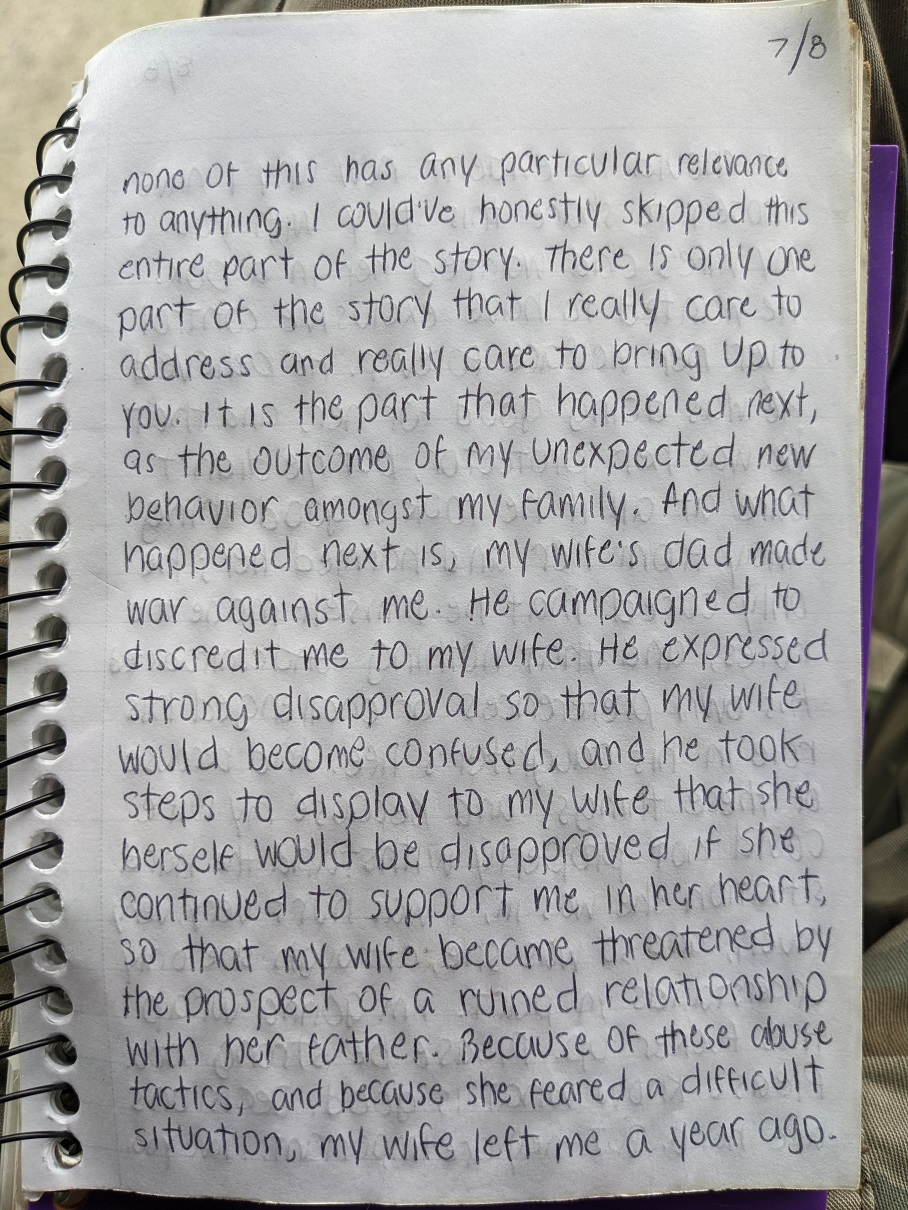 7/8
none of this has any particular relevance
to anything. I could've honestly skipped this
entire part of the story. There is only one
part of the story that I really care to
address and really care to bring up to
you. It is the part that happened next,
as the outcome of my unexpected new
behavior amongst my family. And what
happened next is, my wife's dad made
war against me. He campaigned to
discredit me to my wife. He expressed
strong disapproval so that my wife
would become confused, and he took
steps to display to my wife that she
herself would be disapproved if she
continued to support me in her heart,
so that my wife became threatened by
the prospect of a ruined relationship
with her father. Because of these abuse
tactics, and because she feared a difficult
situation, my wife left me a year ago.